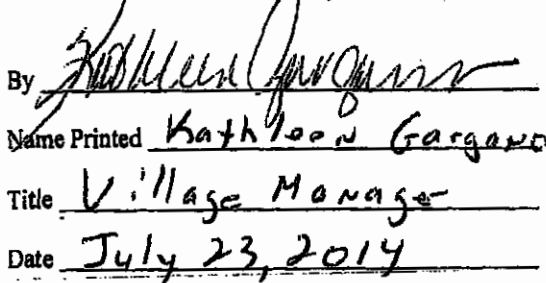 By Kathleen Gargano
Name Printed Kathleen Gargano
Title Village Manager
Date July 23, 2014